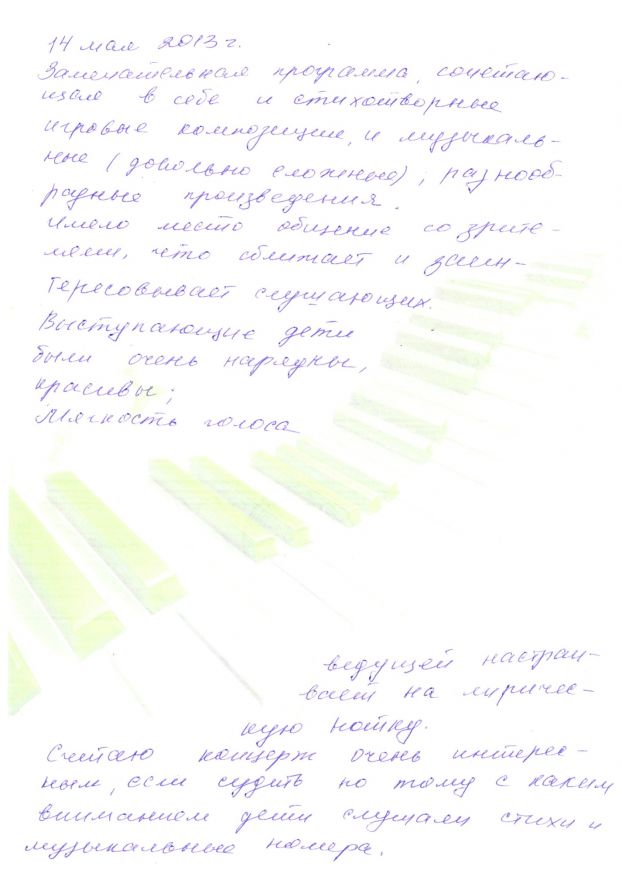 14 мая 2013 г.
Замечательная программа, сочетаю-
щая в себе и стихотворные
игровые композиции, и музыкаль-
ные (довольно сложные), разнооб-
разные произведения.
Имело место общение со зрите-
лями, что сближает и заин-
тересовывает слушающих.
Выступающие дети
были очень нарядны,
красивы;
Мягкость голоса
ведущей настраи-
вает на лиричес-
кую нотку.
Считаю концерт очень интерес-
ным, если судить по тому с каким
вниманием дети слушали стихи и
музыкальные номера.